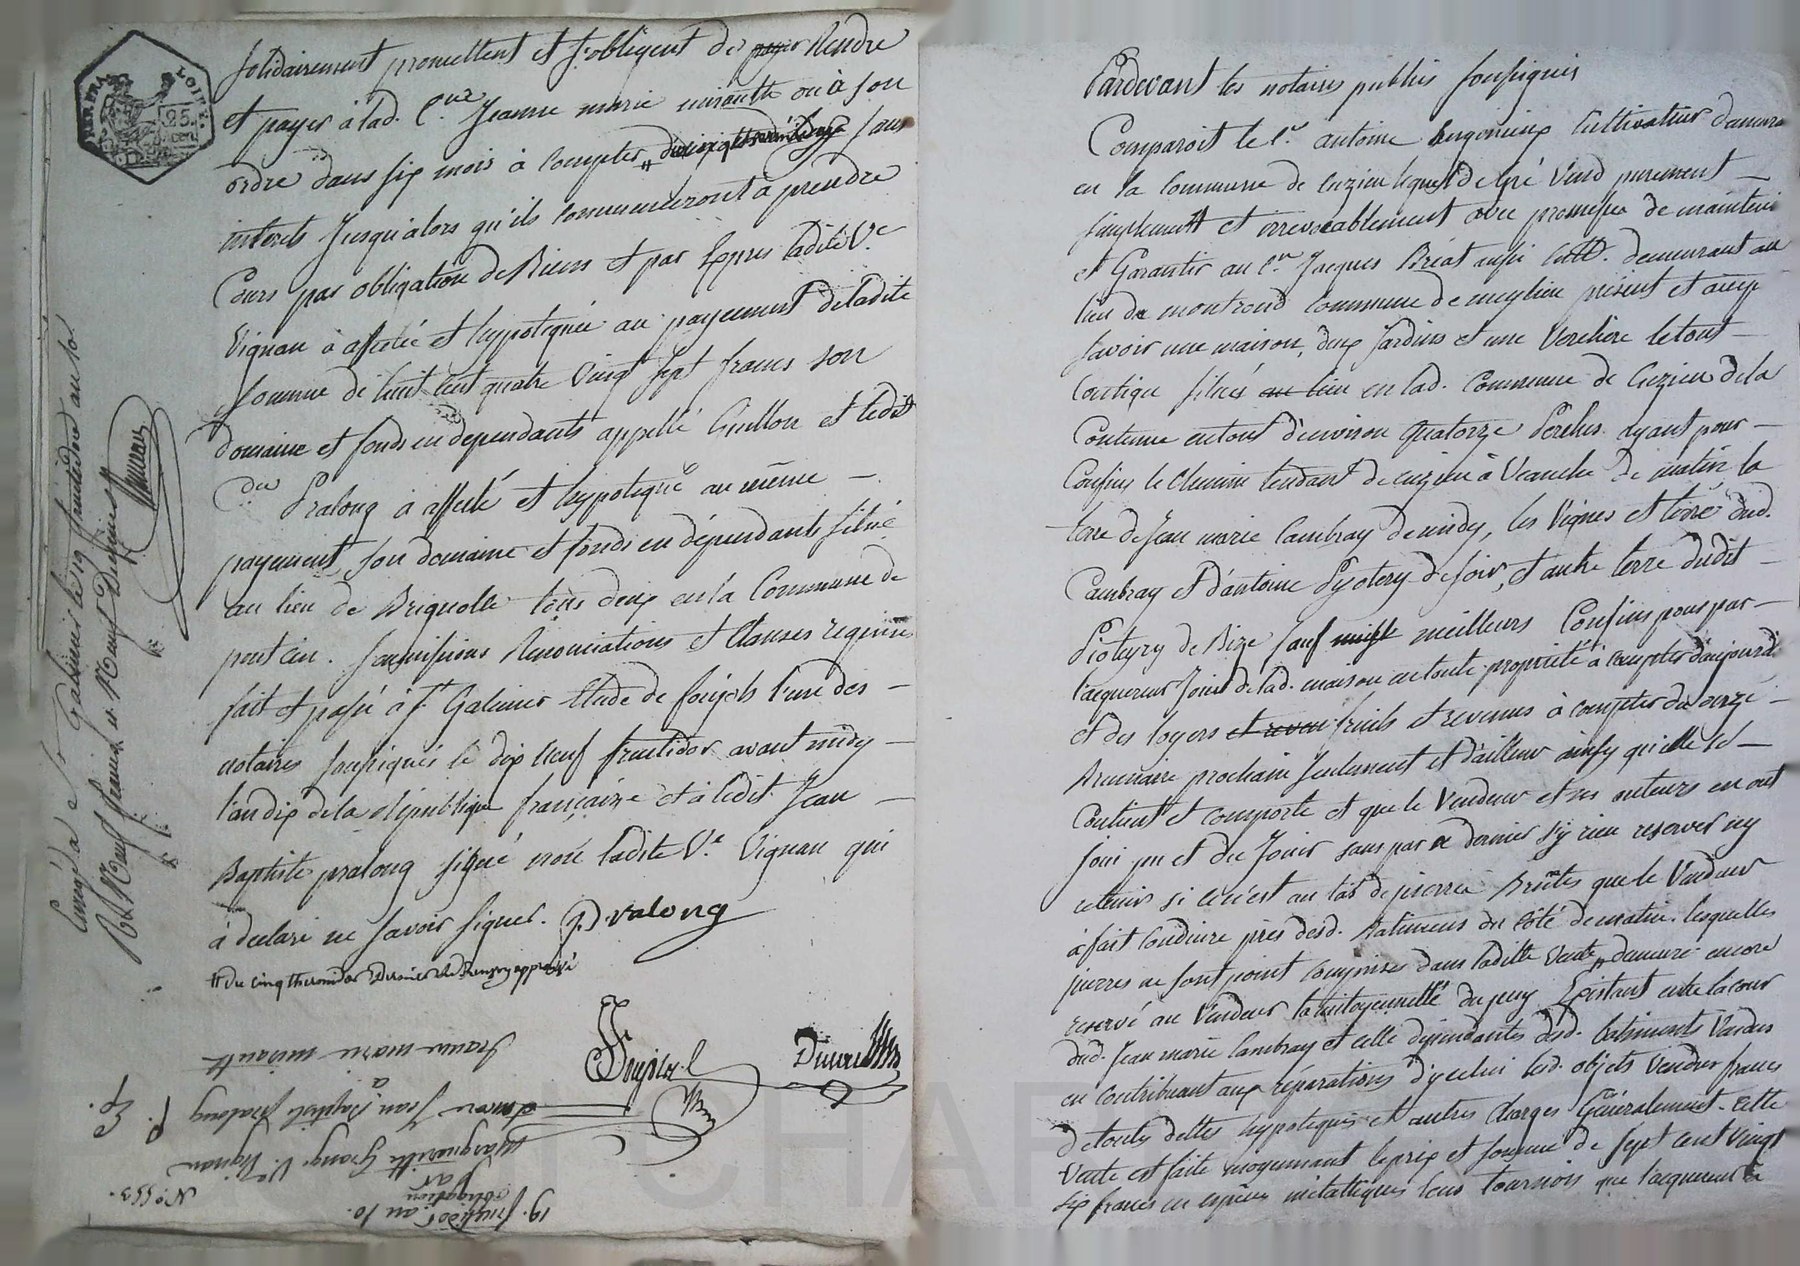 solidairement promettent et s'obligent de payer Rendre
et payer à lad. C.ne Jeanne marie mirante ou à son
ordre dans six mois à compter sans
interets Jusqu'alors qu'ils commenceront à prendre
Cours pas obligation de Biens et par Exprès ladite V.e
Vignan à affecté et hypotequée au payement deladite
somme de huit cent quatre vingt sept francs son
domaine et fonds en dependants appellé Guillon et ledit
Pralong à affecté et hypotequé au même
payement son domaine et fonds en dépendants situé
au lieu de Brignolle tous deux en la Commune de
soumissions Renonciations et Clauses requises
fait et passé à S.t Galmier Etude de l'un des
notaires soussignés le dix neuf fructidor avant midy
l'an dix de la République française et à ledit Jean
Baptiste pralong signé non ladite V.e Vignan qui
à declaré ne savoir signer. J. Pralong
# du cinq thermidor Dernier approuvé
Jeanne marie mirante
Jean Baptiste Pralong
Marguerite Grange V. Vignan
N.o 553.
obligation
19. fructidor an 10.
à S.t Galmier le 19 fructidor an 10
Pardevant les notaires publics soussignés
Comparoit le C.n antoine cultivateur demeurant
en la Commune de Cuzieu lequel de Gré Vend purement
simplement et irrevocablement avec promesse de maintenir
et Garantir au C.en Jacques Bréat aussi Cult. demeurant au
lieu de montrond commune de meylieu présent et accep
savoir une maison, deux Jardins et une Verchère le tout
Contigu situés au lieu en lad. Commune de Cuzieu de la
Contenue en tout d'environ quatorze Perches ayant pour
Confins le Chemin tendant de cuzieu à Veauche de matin, la
terre de Jean marie Cambray de midy, les Vignes et terre dud.
Cambray et d'antoine Pyotery de soir, et autre terre dudit
Piotery de Bize sauf meilleurs Confins pour par
l'acquereur Jouir de lad. maison en toute propriété à compter d'aujourd'
et des loyers et reven fruits et revenus à compter du onze
Brumaire prochain seulement et d'ailleur ainsy qu'elle se
Contient et comporte et que le Vendeur et ses auteurs en ont
Joui pu et du Jouir sans par ce dernier s'y rien reserver ny
retenir si ce n'est un tas de pierres Brutes que le Vendeur
à fait Conduire près desd. Batimens du côté de matin. lesquelles
pierres ne sont point comprises dans ladite Vente, demeure encore
reservé au Vendeur la mitoyenneté du puy Existant entre la cour
dud. Jean marie Cambray et celle dépendantes desd. batiments Vendus
en contribuant aux réparations d'y celui lesd. objets Vendus francs
de touts dettes hypoteques et autres charges Généralement. Cette
Vente est faite moyennant le prix et somme de sept cent vingt
six francs en espèces métalliques tournois que l'acquereur